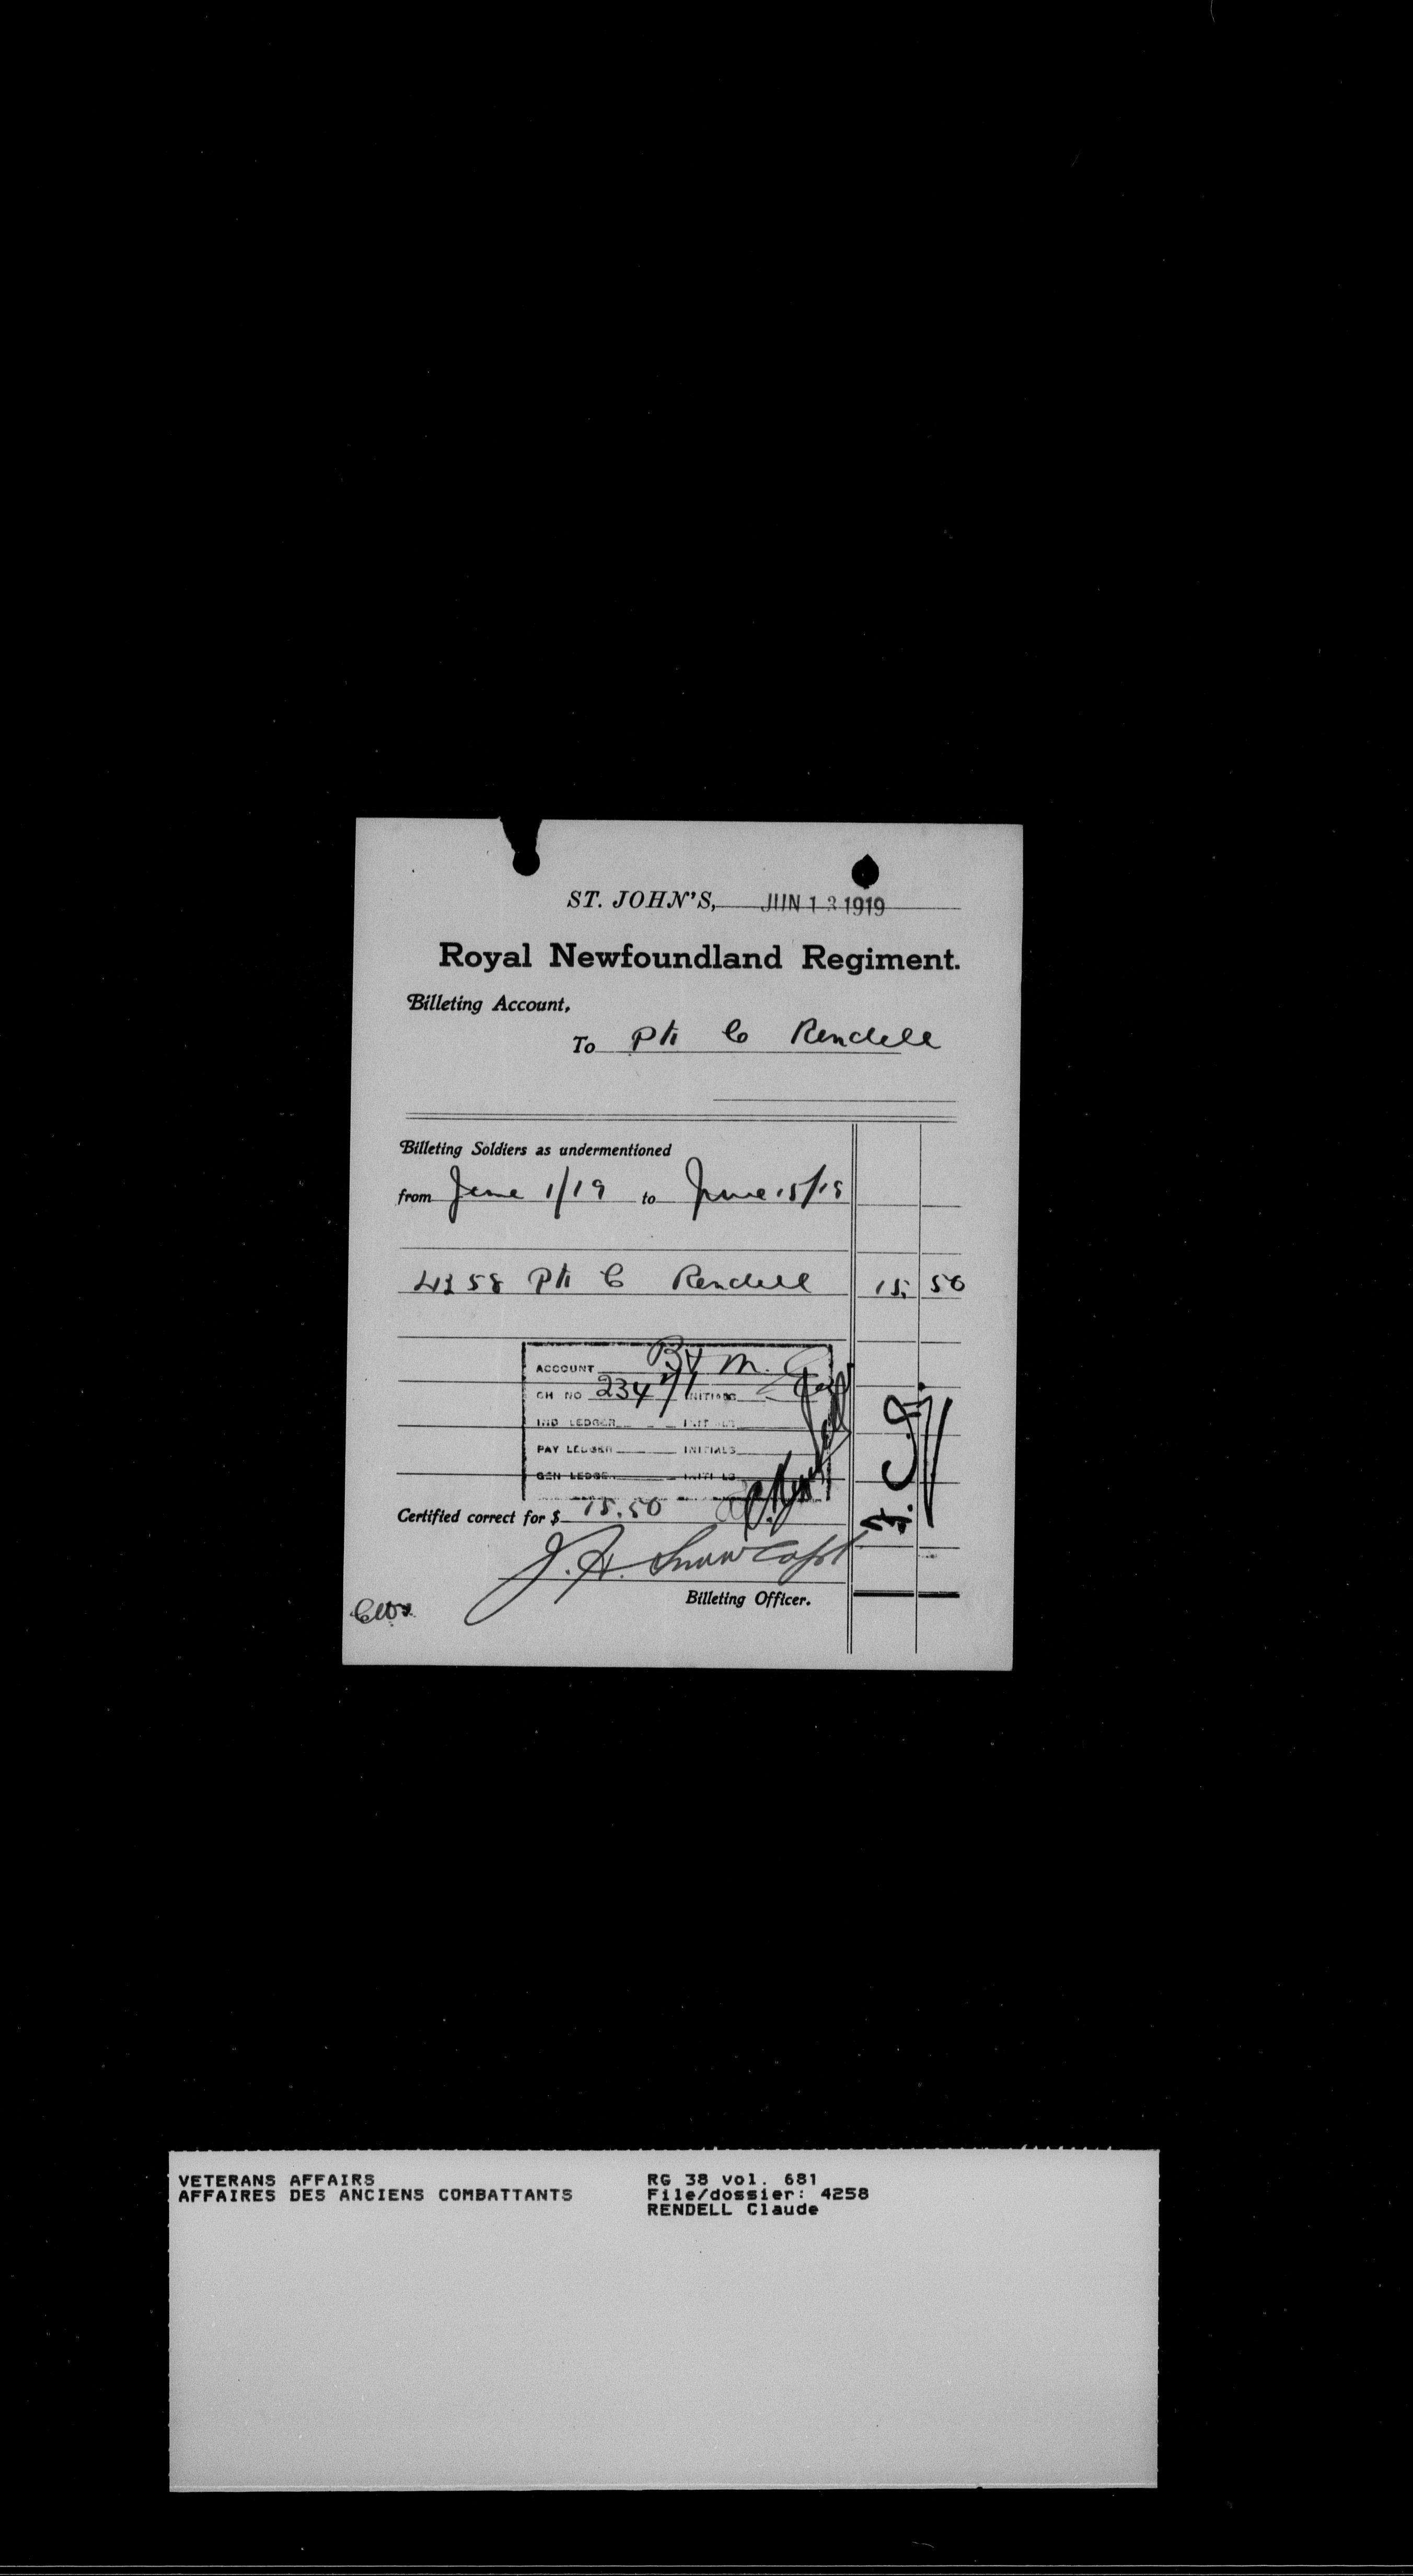 ST. JOHN'S, JUN 13 1919
Royal Newfoundland Regiment.
Billeting Account,
To Pte C Rendell
Billeting Soldiers as undermentioned
from June 1/19 to June 15/19
4358 Pte C Rendell 15. 50
ACCOUNT
CH NO 23471 INITIALS
IND LEDGER INITIALS
PAY LEDGER INITIALS
GEN LEDGER INITIALS
Certified correct for $ 15.50
J. H. Snow Capt
Billeting Officer.
VETERANS AFFAIRS
AFFAIRES DES ANCIENS COMBATTANTS
RG 38 vol. 681
File/dossier: 4258
RENDELL Claude